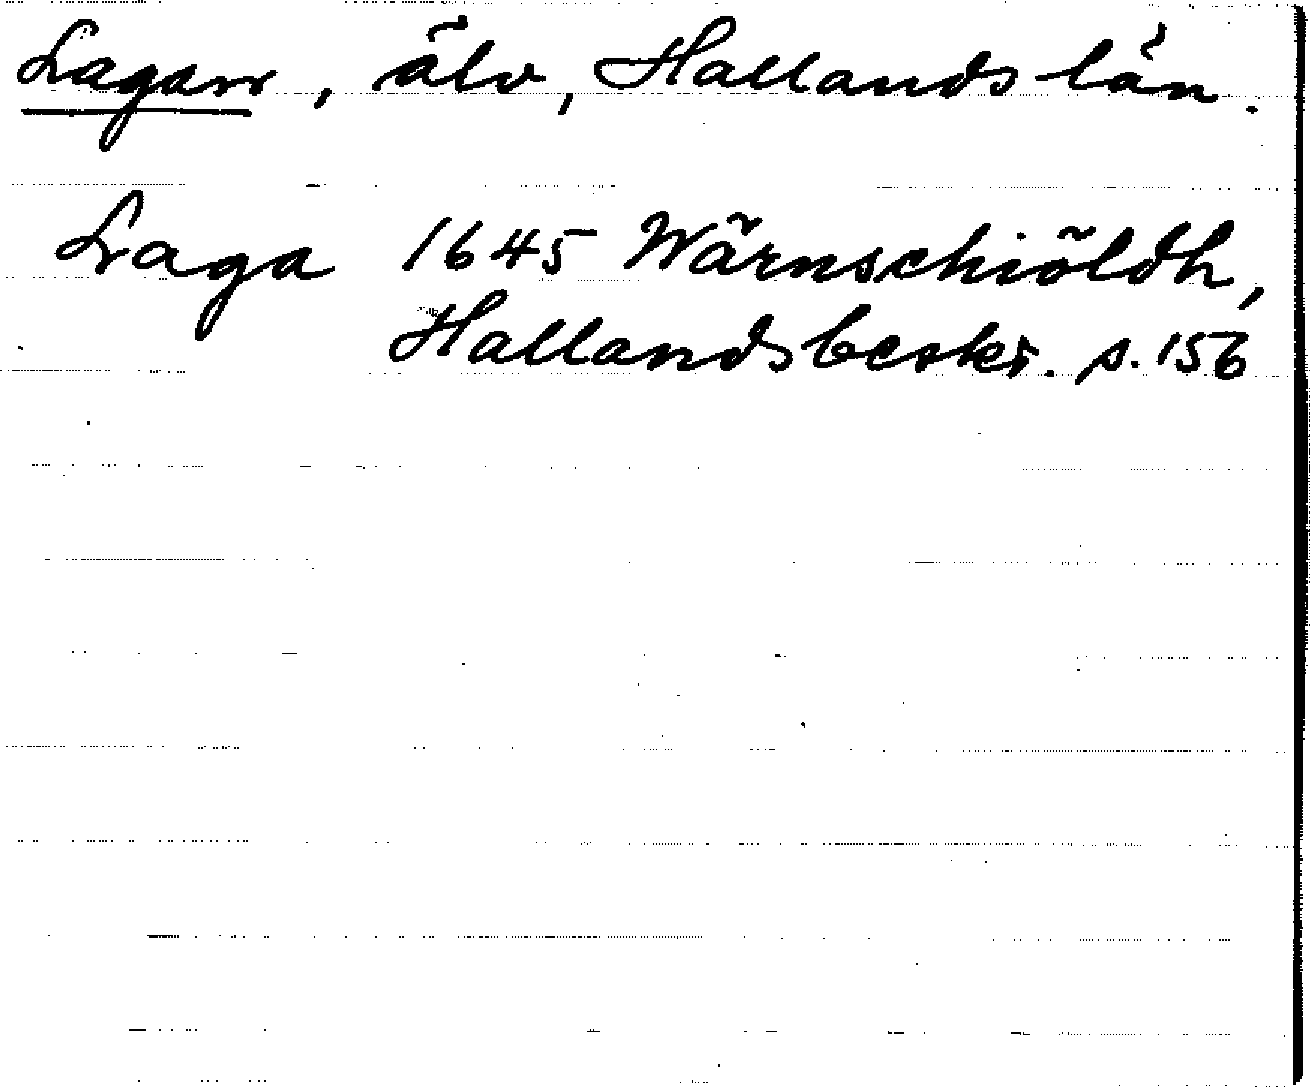 Lagan, älv, Hallands län.
Laga 1645 Wärnschiöldh,
Hallandsbeskr. s. 156